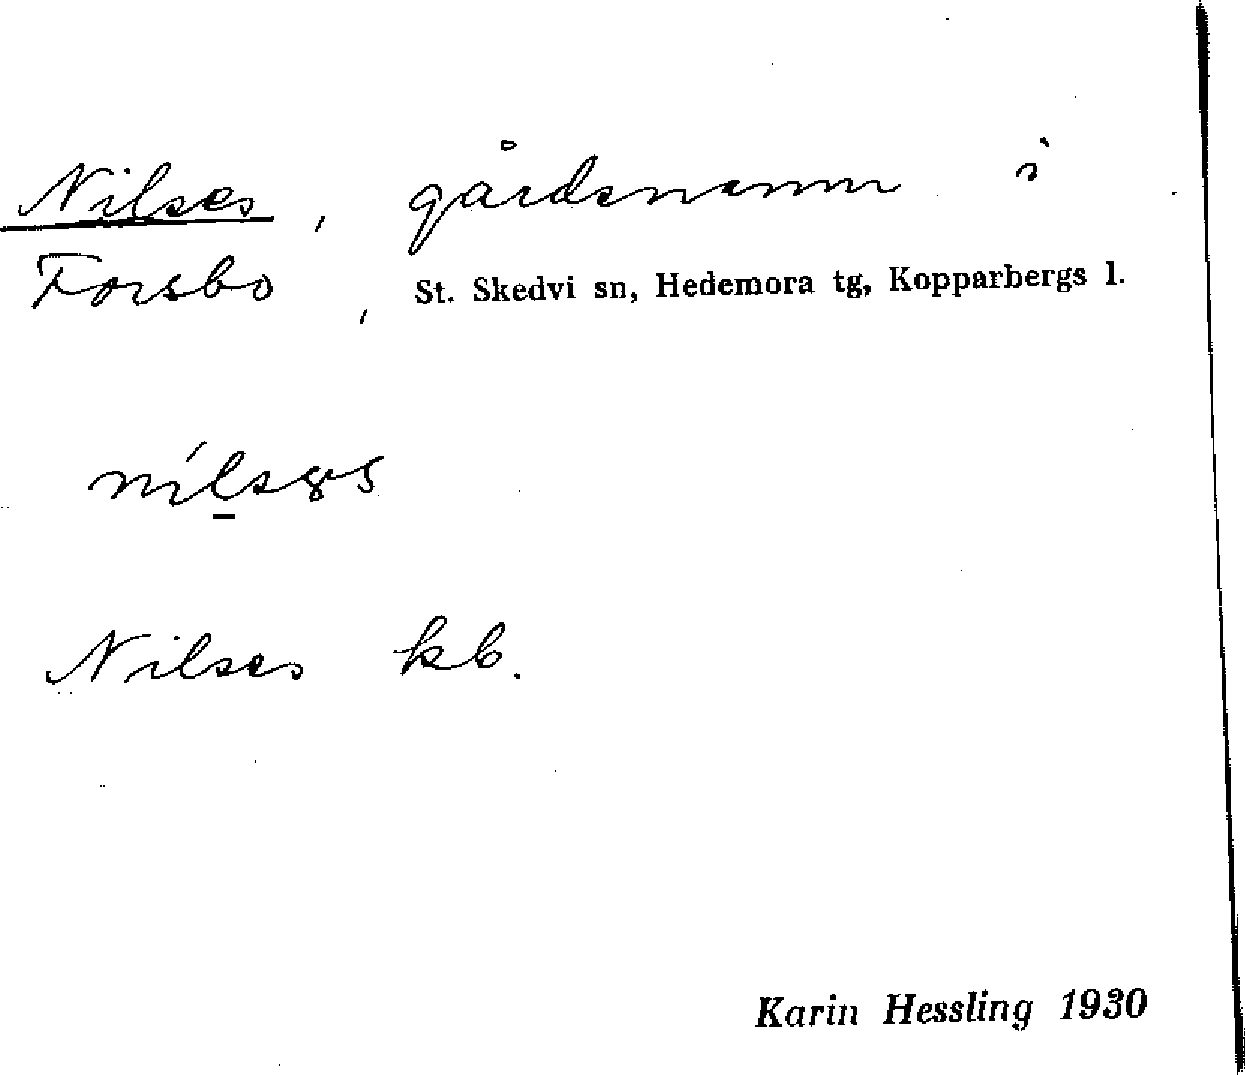 Nilses, gårdsnamn i
Forsbo, St. Skedvi sn, Hedemora tg, Kopparbergs l.
Nilses kb.
Karin Hessling 1930